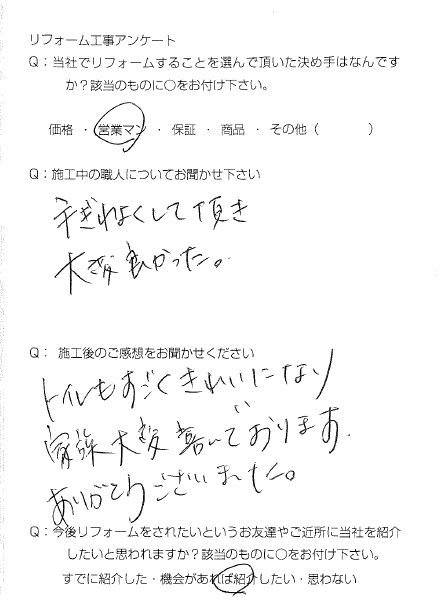 リフォーム工事アンケート
Q：当社でリフォームすることを選んで頂いた決め手はなんです
か？該当のものに○をお付け下さい。
価格 ・ 営業マン ・ 保証 ・ 商品 ・ その他（　　　）
Q：施工中の職人についてお聞かせ下さい
手ぎわよくして頂き
大変良かった。
Q： 施工後のご感想をお聞かせください
トイレもすごくきれいになり
家族大変喜いでおります.
ありがとうございました。
Q：今後リフォームをされたいというお友達やご近所に当社を紹介
したいと思われますか？該当のものに○をお付け下さい。
すでに紹介した・機会があれば紹介したい・思わない